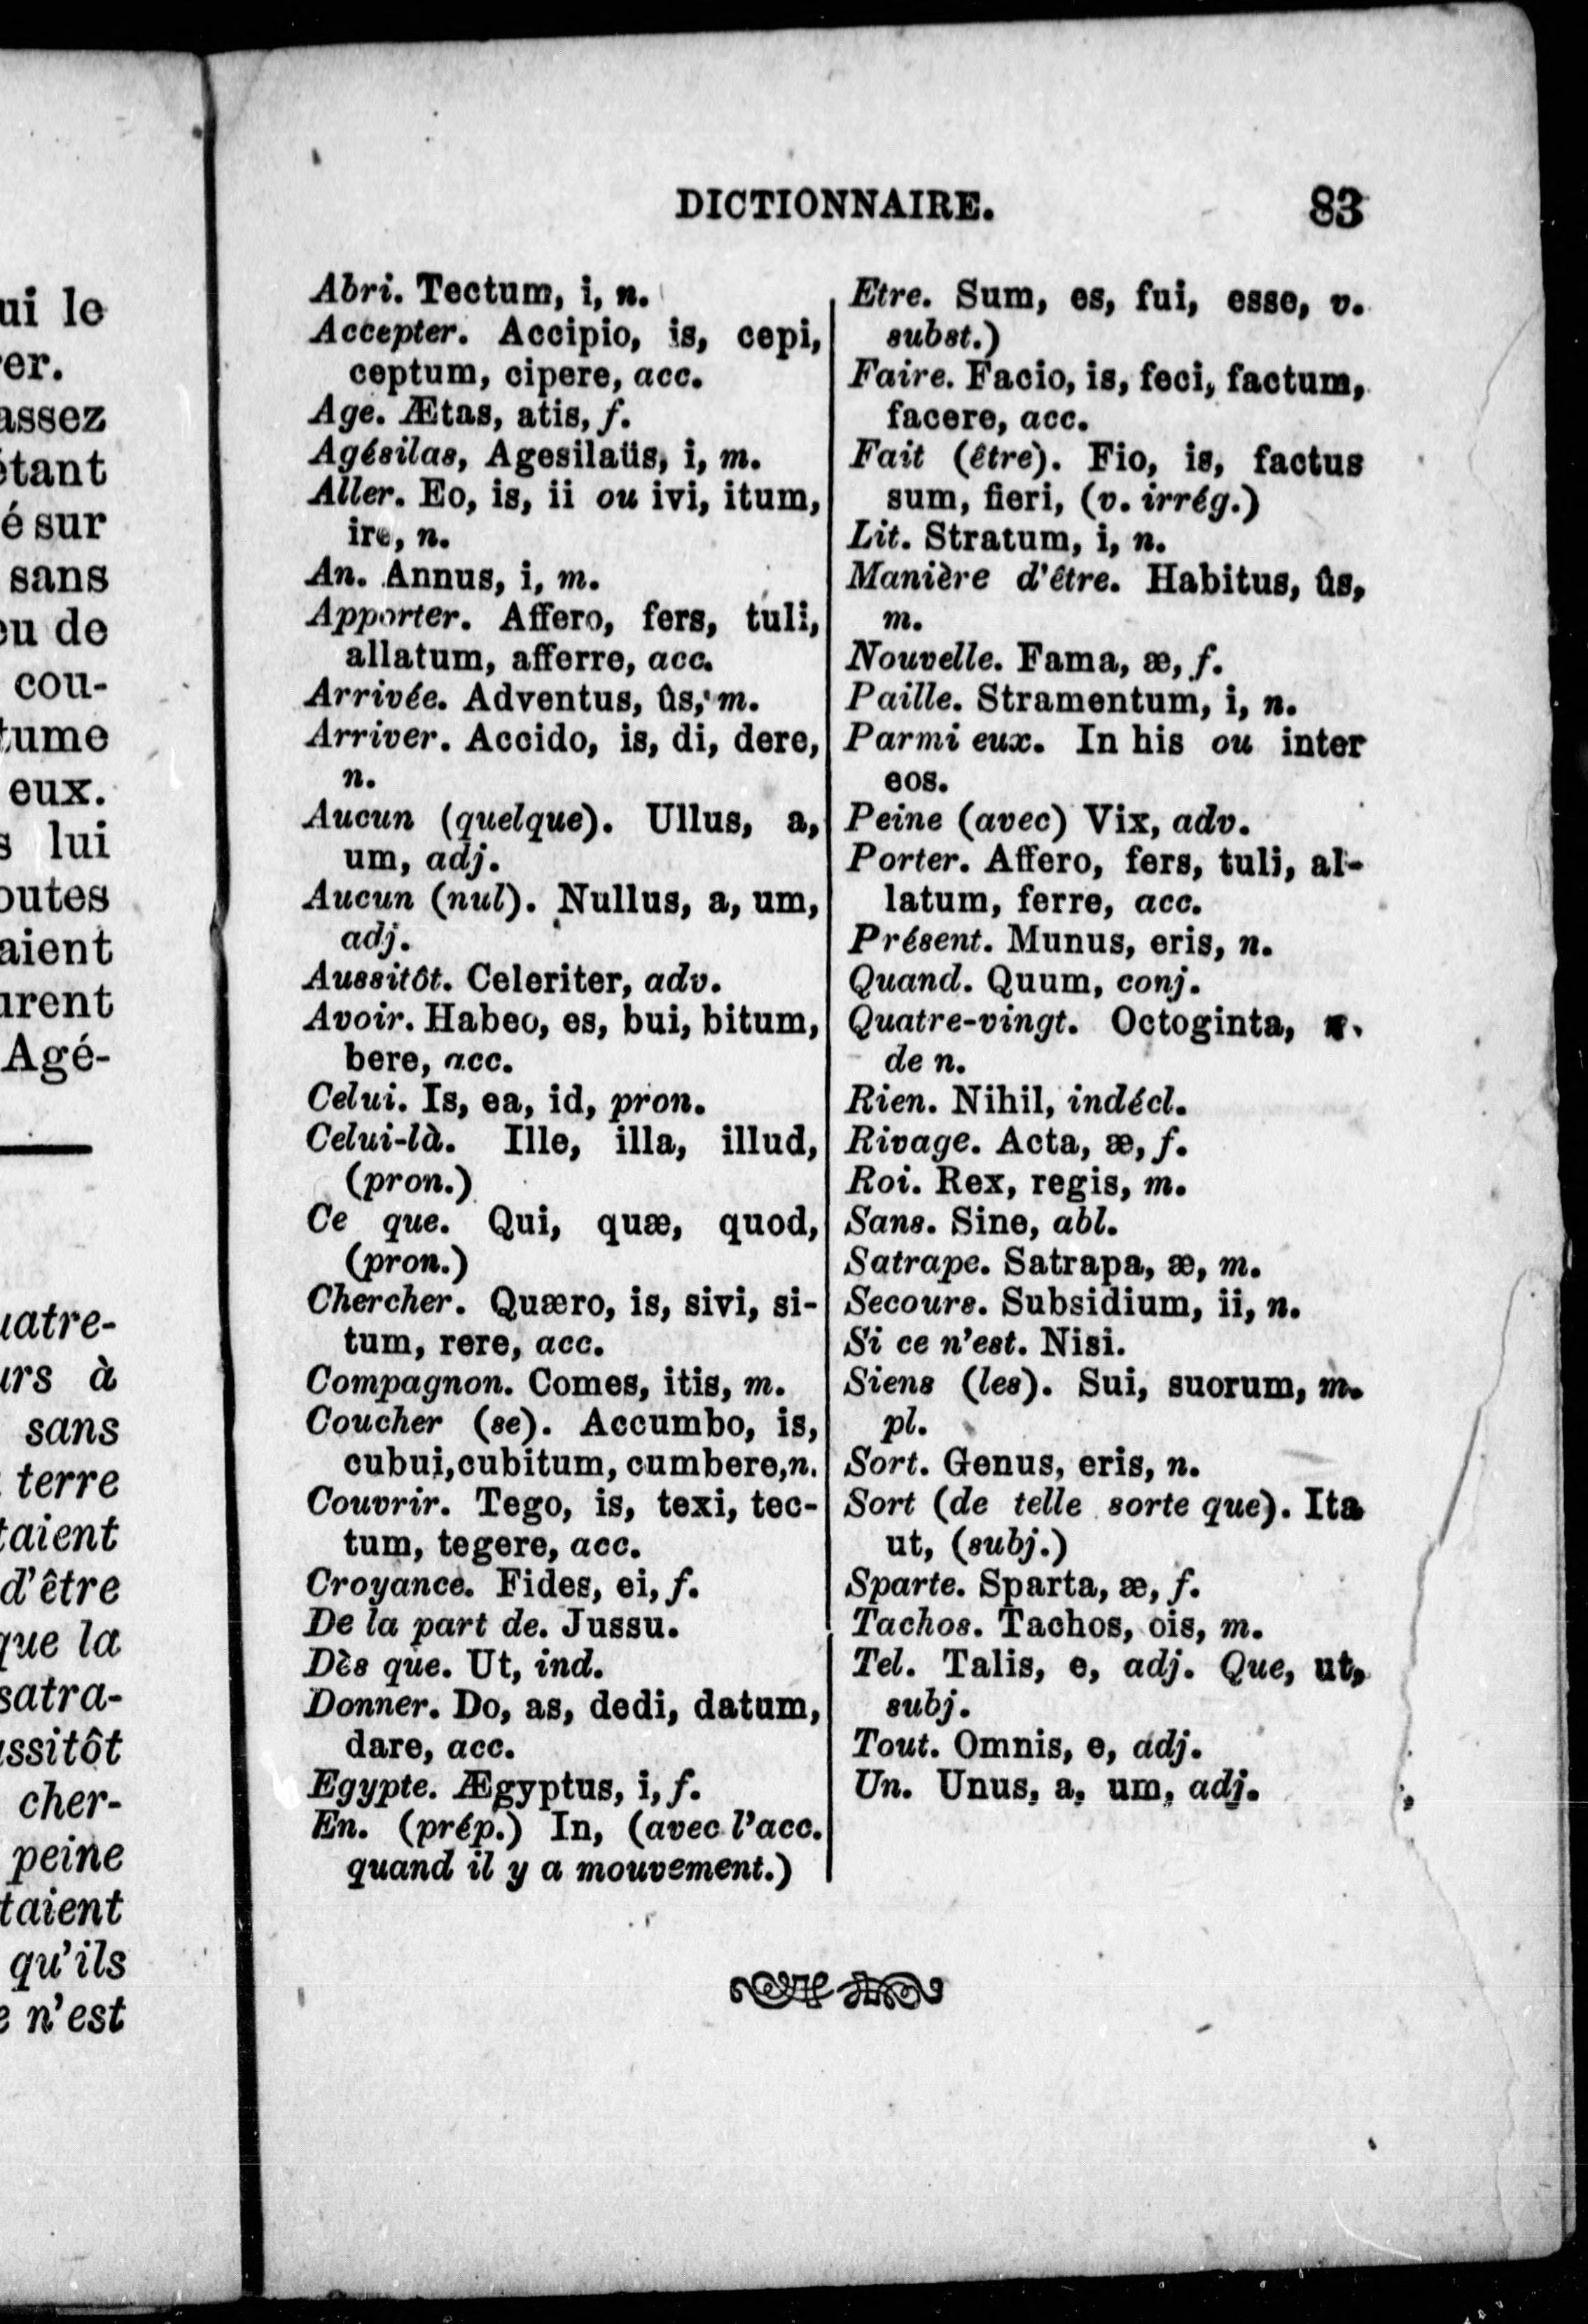 ui le
er.
assez
étant
é sur
sans
eu de
cou-
tume
eux.
s lui
outes
aient
urent
Agé-
uatre-
urs à
sans
terre
taient
d'être
que la
satra-
ussitôt
cher-
peine
taient
qu'ils
e n'est
DICTIONNAIRE. 83
Abri. Tectum, i, n.
Accepter. Accipio, is, cepi,
ceptum, cipere, acc.
Age. Ætas, atis, f.
Agésilas, Agesilaüs, i, m.
Aller. Eo, is, ii ou ivi, itum,
ire, n.
An. Annus, i, m.
Apporter. Affero, fers, tuli,
allatum, afferre, acc.
Arrivée. Adventus, ûs, m.
Arriver. Accido, is, di, dere,
n.
Aucun (quelque). Ullus, a,
um, adj.
Aucun (nul). Nullus, a, um,
adj.
Aussitôt. Celeriter, adv.
Avoir. Habeo, es, bui, bitum,
bere, acc.
Celui. Is, ea, id, pron.
Celui-là. Ille, illa, illud,
(pron.)
Ce que. Qui, quæ, quod,
(pron.)
Chercher. Quæro, is, sivi, si-
tum, rere, acc.
Compagnon. Comes, itis, m.
Coucher (se). Accumbo, is,
cubui, cubitum, cumbere, n.
Couvrir. Tego, is, texi, tec-
tum, tegere, acc.
Croyance. Fides, ei, f.
De la part de. Jussu.
Dès que. Ut, ind.
Donner. Do, as, dedi, datum,
dare, acc.
Egypte. Ægyptus, i, f.
En. (prép.) In, (avec l'acc.
quand il y a mouvement.)
Etre. Sum, es, fui, esse, v.
subst.)
Faire. Facio, is, feci, factum,
facere, acc.
Fait (être). Fio, is, factus
sum, fieri, (v. irrég.)
Lit. Stratum, i, n.
Manière d'être. Habitus, ûs,
m.
Nouvelle. Fama, æ, f.
Paille. Stramentum, i, n.
Parmi eux. In his ou inter
eos.
Peine (avec) Vix, adv.
Porter. Affero, fers, tuli, al-
latum, ferre, acc.
Présent. Munus, eris, n.
Quand. Quum, conj.
Quatre-vingt. Octoginta,
de n.
Rien. Nihil, indécl.
Rivage. Acta, æ, f.
Roi. Rex, regis, m.
Sans. Sine, abl.
Satrape. Satrapa, æ, m.
Secours. Subsidium, ii, n.
Si ce n'est. Nisi.
Siens (les). Sui, suorum, m.
pl.
Sort. Genus, eris, n.
Sort (de telle sorte que). Ita
ut, (subj.)
Sparte. Sparta, æ, f.
Tachos. Tachos, ois, m.
Tel. Talis, e, adj. Que, ut,
subj.
Tout. Omnis, e, adj.
Un. Unus, a, um, adj.